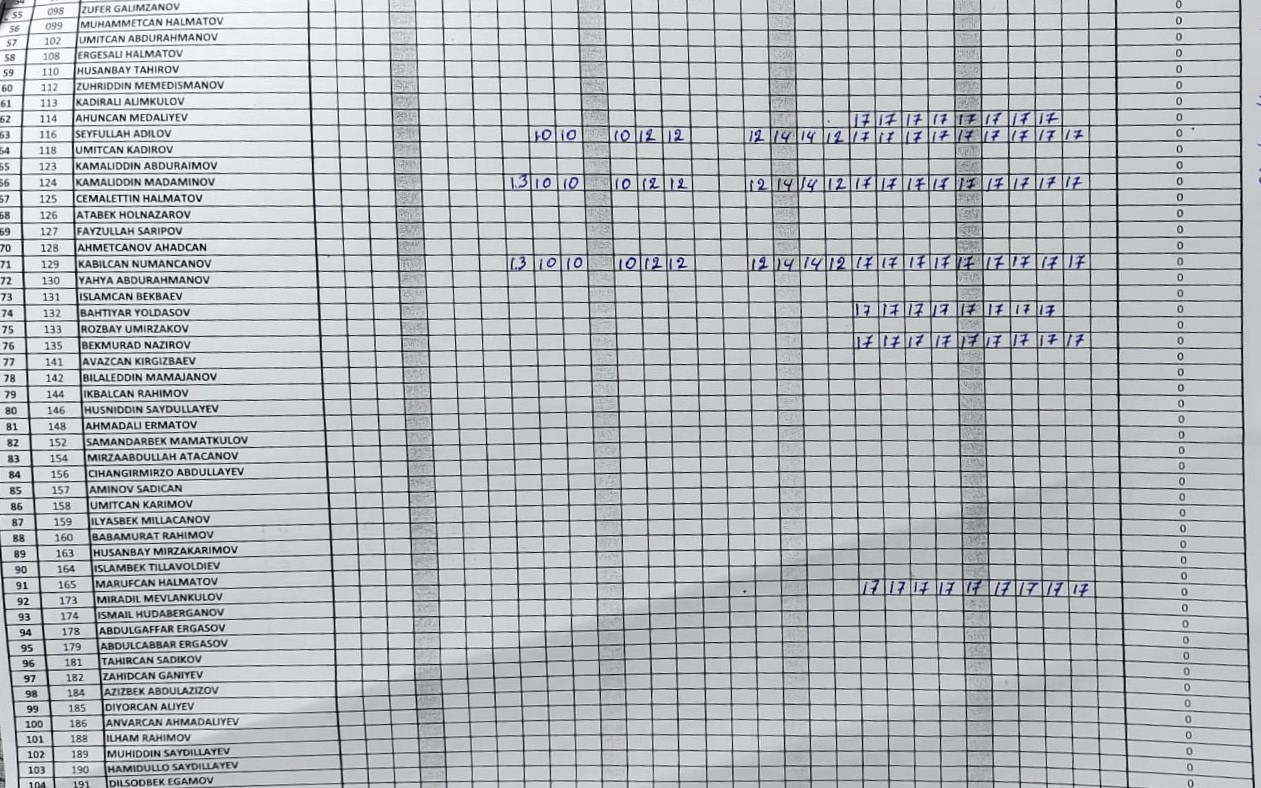 55 098 ZUFER GALIMZANOV 0
56 099 MUHAMMETCAN HALMATOV 0
57 102 UMITCAN ABDURAHMANOV 0
58 108 ERGESALI HALMATOV 0
59 110 HUSANBAY TAHIROV 0
60 112 ZUHRIDDIN MEMEDISMANOV 0
61 113 KADIRALI ALIMKULOV 0
62 114 AHUNCAN MEDALIYEV 17 17 17 17 17 17 17 17 0
63 116 SEYFULLAH ADILOV 10 10 10 12 12 12 14 14 12 17 17 17 17 17 17 17 17 17 0
64 118 UMITCAN KADIROV 0
65 123 KAMALIDDIN ABDURAIMOV 0
66 124 KAMALIDDIN MADAMINOV 1.3 10 10 10 12 12 12 14 14 12 17 17 17 17 17 17 17 17 17 0
67 125 CEMALETTIN HALMATOV 0
68 126 ATABEK HOLNAZAROV 0
69 127 FAYZULLAH SARIPOV 0
70 128 AHMETCANOV AHADCAN 0
71 129 KABILCAN NUMANCANOV 1.3 10 10 10 12 12 12 14 14 12 17 17 17 17 17 17 17 17 17 0
72 130 YAHYA ABDURAHMANOV 0
73 131 ISLAMCAN BEKBAEV 0
74 132 BAHTIYAR YOLDASOV 17 17 17 17 17 17 17 17 0
75 133 ROZBAY UMIRZAKOV 0
76 135 BEKMURAD NAZIROV 17 17 17 17 17 17 17 17 17 0
77 141 AVAZCAN KIRGIZBAEV 0
78 142 BILALEDDIN MAMAJANOV 0
79 144 IKBALCAN RAHIMOV 0
80 146 HUSNIDDIN SAYDULLAYEV 0
81 148 AHMADALI ERMATOV 0
82 152 SAMANDARBEK MAMATKULOV 0
83 154 MIRZAABDULLAH ATACANOV 0
84 156 CIHANGIRMIRZO ABDULLAYEV 0
85 157 AMINOV SADICAN 0
86 158 UMITCAN KARIMOV 0
87 159 ILYASBEK MILLACANOV 0
88 160 BABAMURAT RAHIMOV 0
89 163 HUSANBAY MIRZAKARIMOV 0
90 164 ISLAMBEK TILLAVOLDIEV 0
91 165 MARUFCAN HALMATOV 17 17 17 17 17 17 17 17 17 0
92 173 MIRADIL MEVLANKULOV 0
93 174 ISMAIL HUDABERGANOV 0
94 178 ABDULGAFFAR ERGASOV 0
95 179 ABDULCABBAR ERGASOV 0
96 181 TAHIRCAN SADIKOV 0
97 182 ZAHIDCAN GANIYEV 0
98 184 AZIZBEK ABDULAZIZOV 0
99 185 DIYORCAN ALIYEV 0
100 186 ANVARCAN AHMADALIYEV 0
101 188 ILHAM RAHIMOV 0
102 189 MUHIDDIN SAYDILLAYEV 0
103 190 HAMIDULLO SAYDILLAYEV 0
104 191 DILSODBEK EGAMOV 0